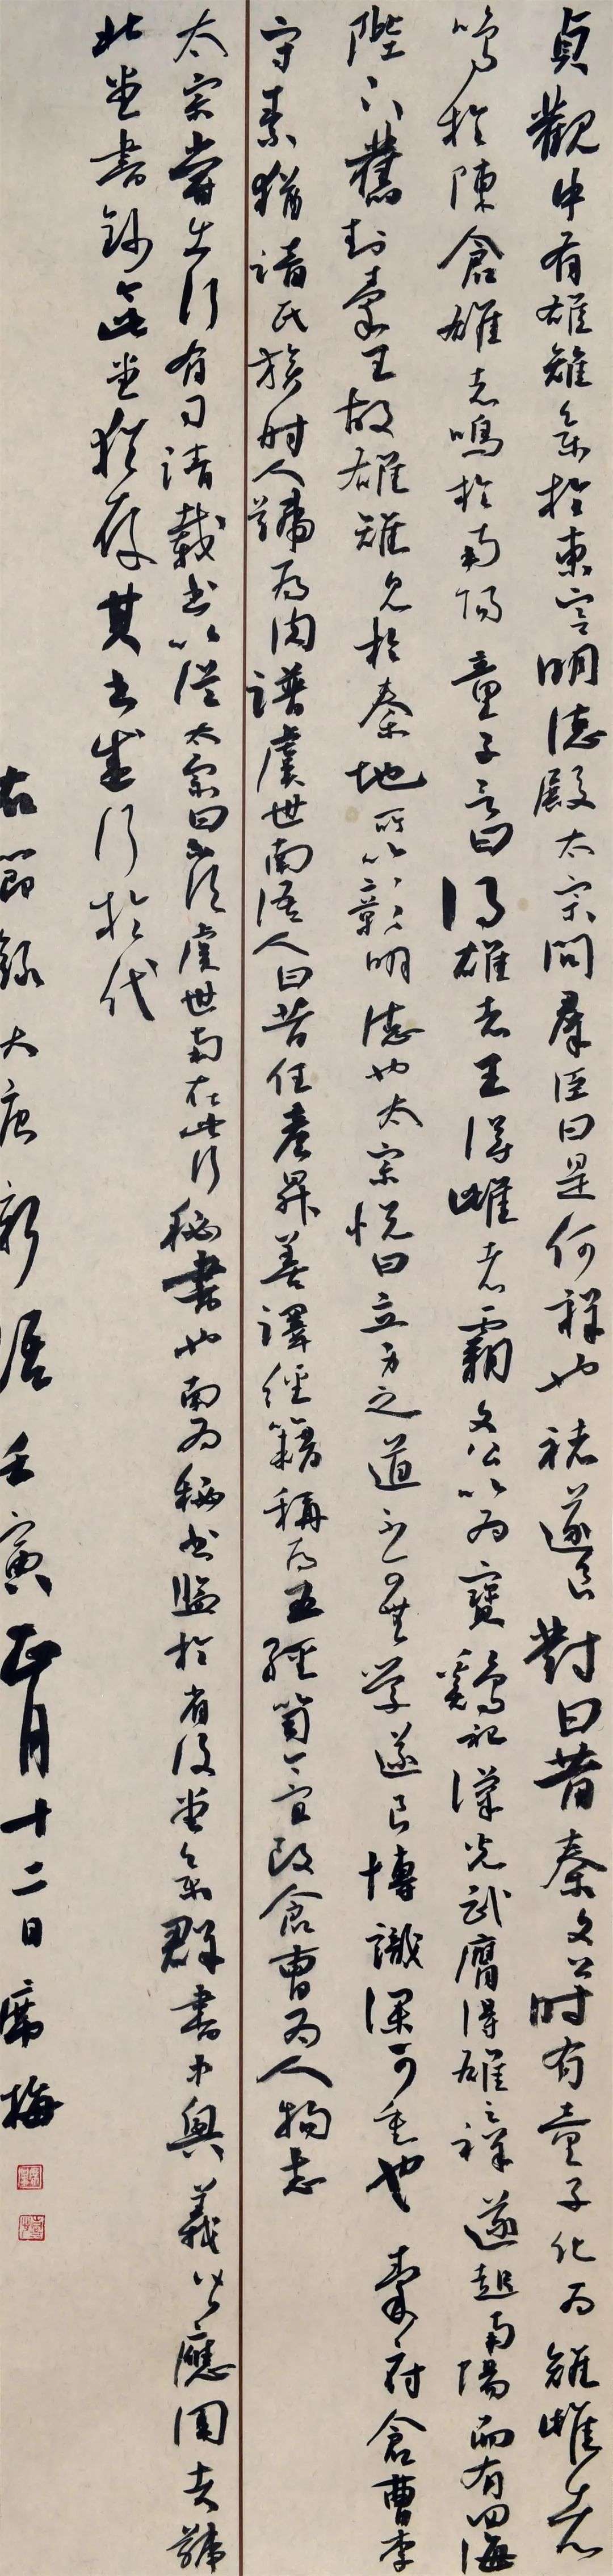 貞觀中有雄雉集於東宮明德殿太宗問羣臣曰是何祥也褚遂良對曰昔秦文公時有童子化為雉雌者
鳴於陳倉雄者鳴於南陽童子言曰得雄者王得雌者霸文公以為寶鷄祀漢光武膺得雄之祥遂起南陽而有四海
陛下舊封秦王故雄雉見於秦地所以彰明德也太宗悅曰立身之道不可無學遂良博識深可重也 秦府倉曹李
守素猶諳氏族時人號為肉譜虞世南語人曰昔任彥昇善譯經籍稱為五經笥今宜改倉曹為人物志
太宗嘗出行有司請載書以從太宗曰不須虞世南在此行秘書也南為秘書監於省後堂集群書中奧義皆應用者號
北堂書鈔今此堂猶存其書盛行於代
右節錄大唐新語 壬寅正月十二日 席梅